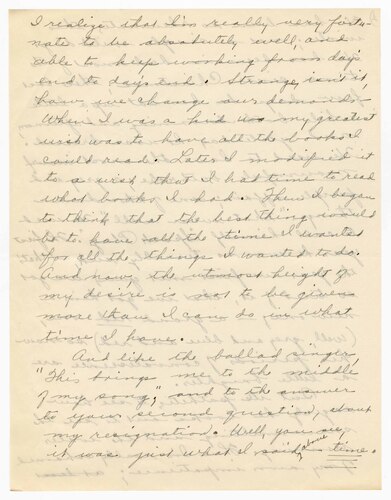 I realize that I'm really very fortu-
nate to be absolutely well, and
able to keep working from day's
end to day's end. Strange, isn't it,
how we change our demands.
When I was a kid my greatest
wish was to have all the books I
could read. Later I modified it
to a wish that I had time to read
what books I had. Then I began
to think that the best thing would
be to have all the time I wanted
for all the things I wanted to do.
And now, the utmost height of
my desire is not to be given
more than I can do in what
time I have.
And like the ballad singer,
"This brings me to the middle
of my song," and to the answer
to your second question, about
my resignation. Well, you see,
it was just what I said above time.